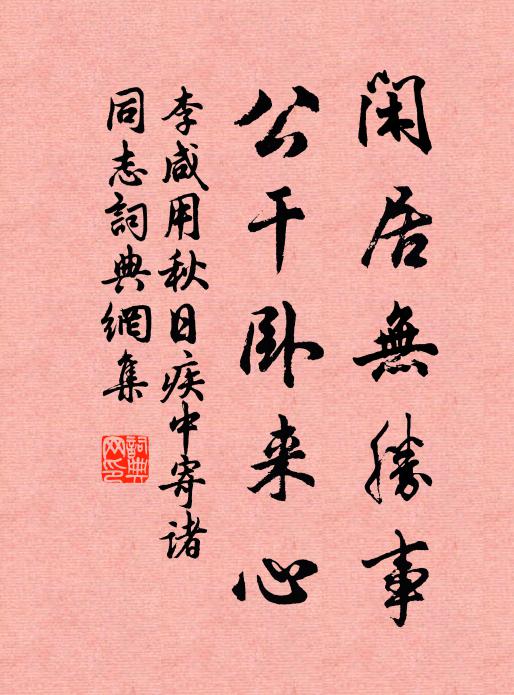 閑居無勝事
公干卧来心
李咸用秋日疾中寄諸
同志詞典網集
詞典网印